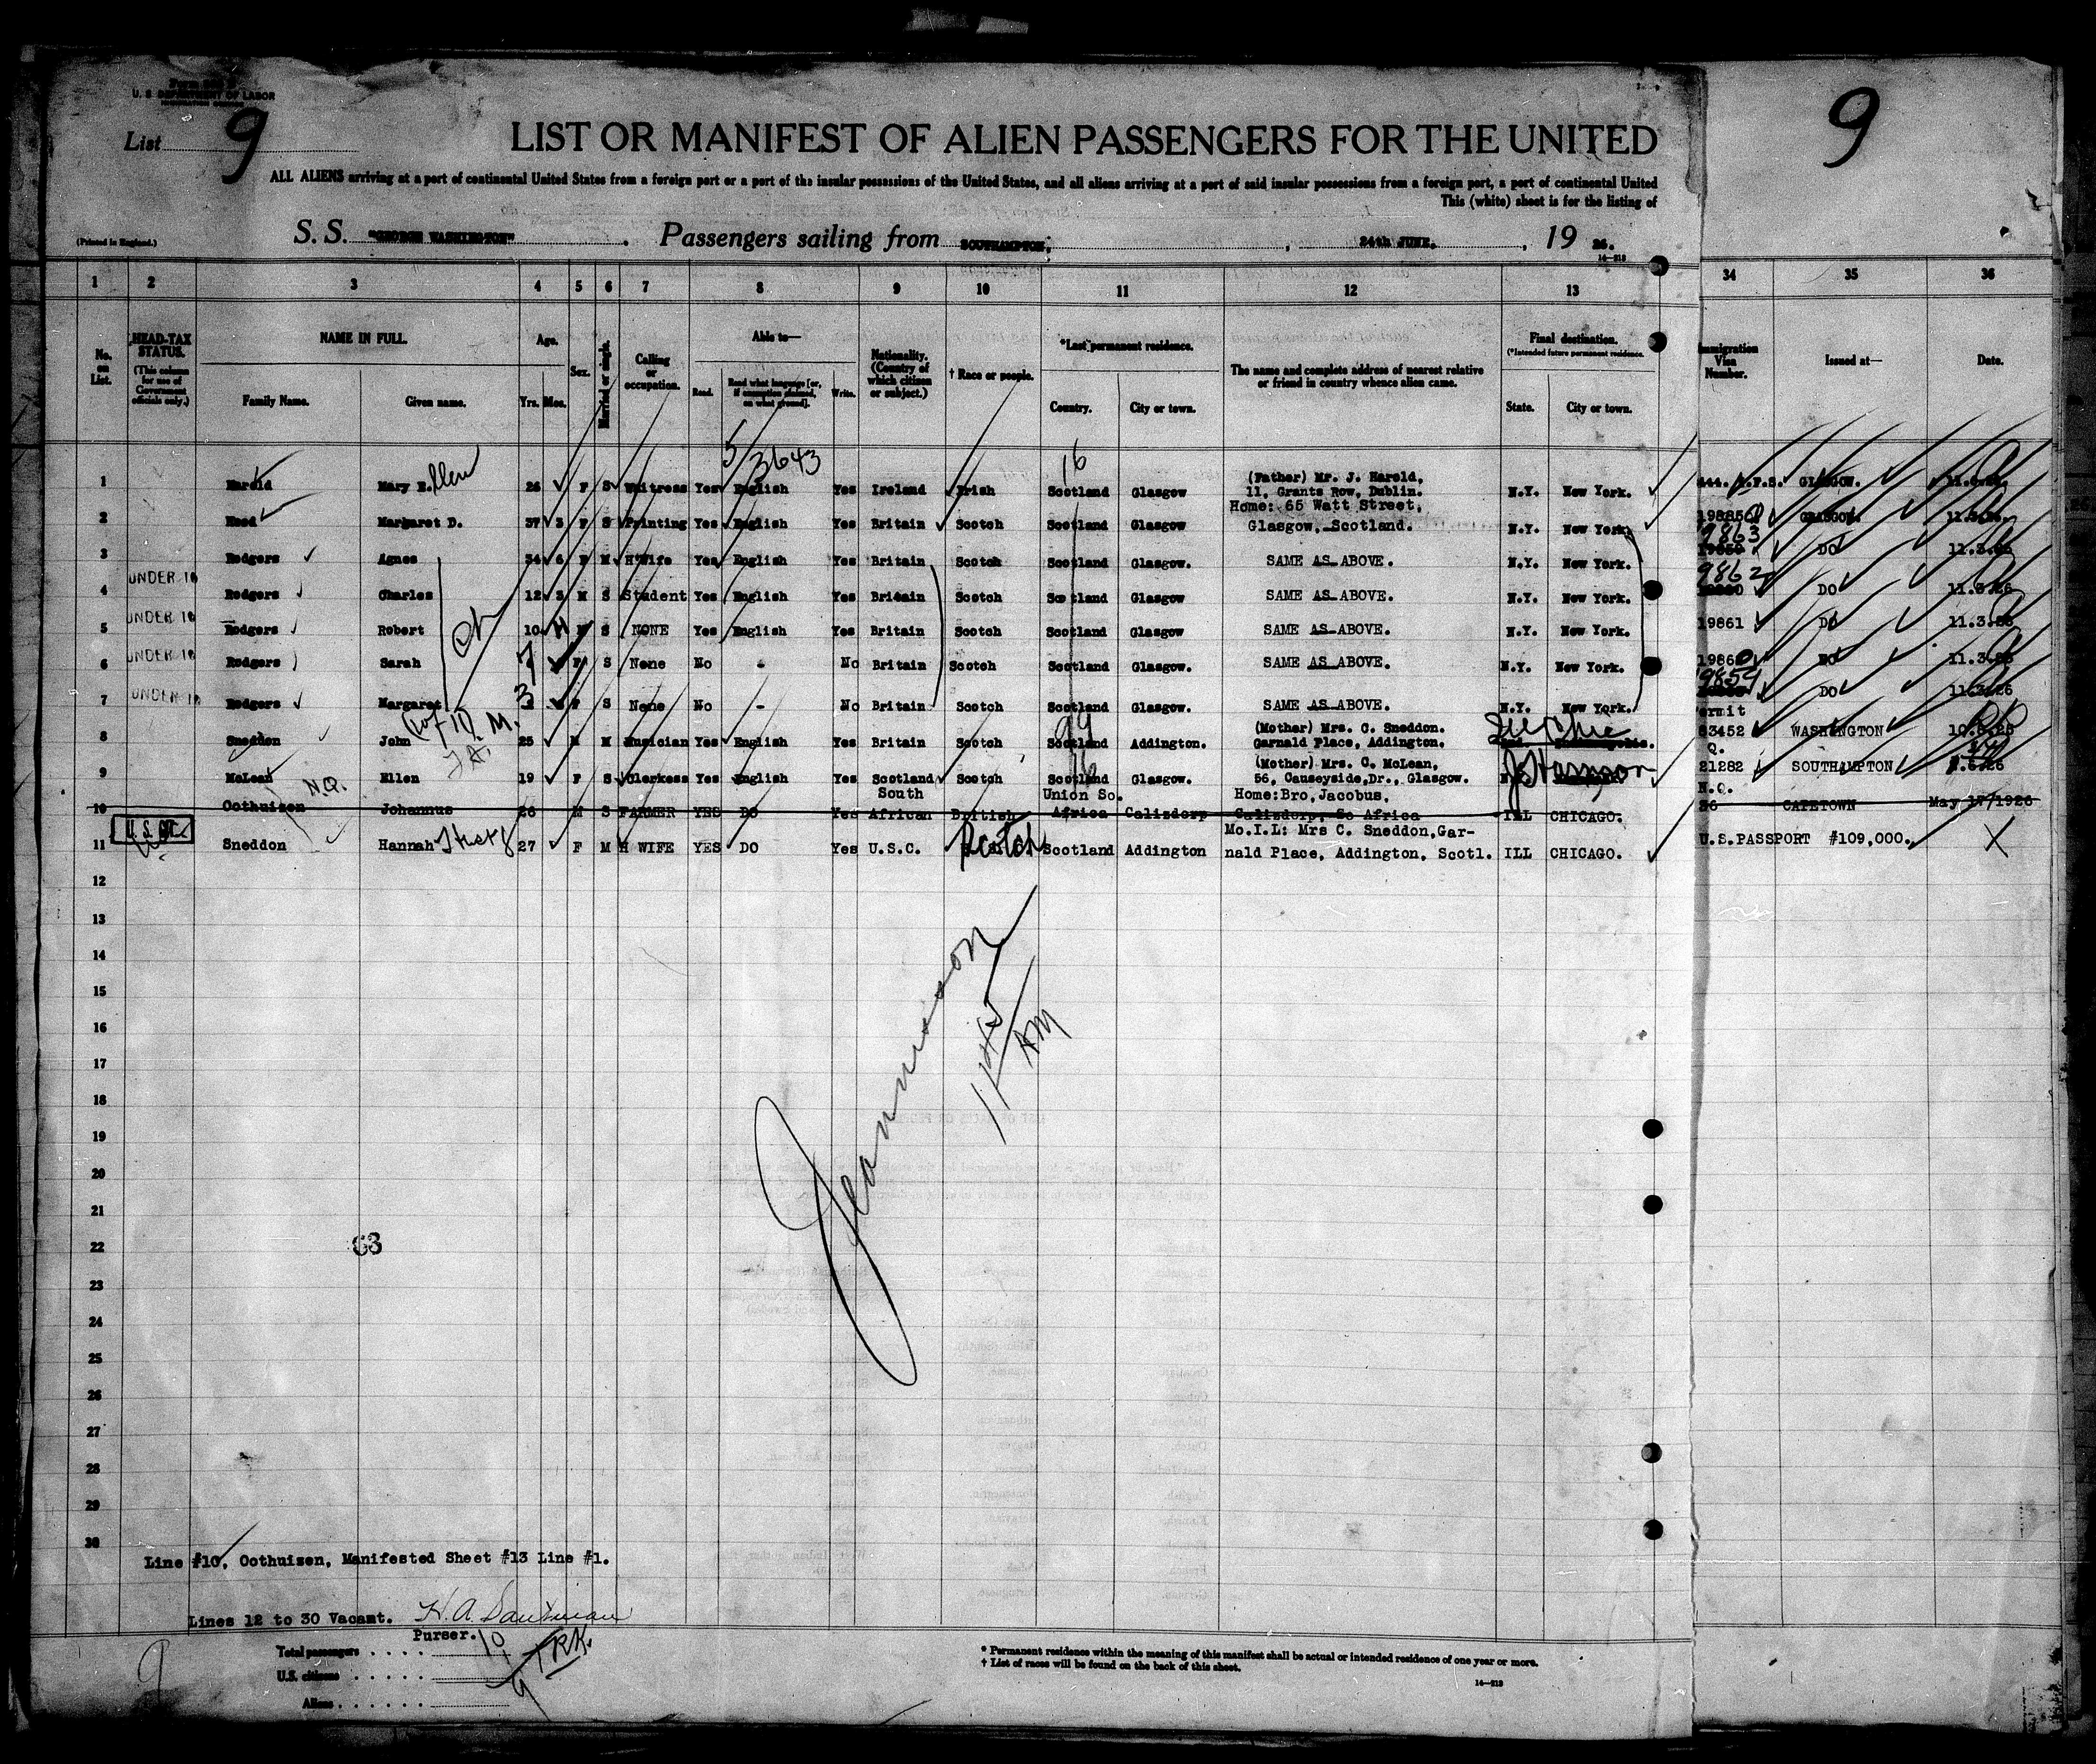 U. S. DEPARTMENT OF LABOR
List 9
LIST OR MANIFEST OF ALIEN PASSENGERS FOR THE UNITED
9
ALL ALIENS arriving at a port of continental United States from a foreign port or a port of the insular possessions of the United States, and all aliens arriving at a port of said insular possessions from a foreign port, a port of continental United
This (white) sheet is for the listing of
(Printed in England.)
S. S. "GEORGE WASHINGTON" . Passengers sailing from SOUTHAMPTON, , 24th JUNE, , 19 26.
14—212
1 2 3 4 5 6 7 8 9 10 11 12 13 34 35 36
No. on List.
HEAD-TAX STATUS. (This column for use of Government officials only.)
NAME IN FULL.
Family Name. Given name.
Age. Yrs. Mos.
Sex.
Married or single.
Calling or occupation.
Able to—
Read. Read what language [or, if exemption claimed, on what ground]. Write.
Nationality. (Country of which citizen or subject.)
† Race or people.
*Last permanent residence.
Country. City or town.
The name and complete address of nearest relative or friend in country whence alien came.
Final destination.
(*Intended future permanent residence.
State. City or town.
Immigration Visa Number.
Issued at—
Date.
5/3643
16
1 Harold Mary E. Ellen 26 F S Waitress Yes English Yes Ireland Irish Scotland Glasgow (Father) Mr. J. Harold, 11, Grants Row, Dublin. N.Y. New York. GLASGOW.
2 Hood Margaret D. 37 3 F S Printing Yes English Yes Britain Scotch Scotland Glasgow Home: 65 Watt Street, Glasgow, Scotland. N.Y. New York. GLASGOW.
3 Rodgers Agnes 34 6 F M H'Wife Yes English Yes Britain Scotch Scotland Glasgow. SAME AS ABOVE. N.Y. New York. 9863 DO 11.3.26
4 UNDER 16 Rodgers Charles 12 3 M S Student Yes English Yes Britain Scotch Scotland Glasgow SAME AS ABOVE. N.Y. New York. 9862 DO 11.3.26
5 UNDER 16 Rodgers Robert 10 M S NONE Yes English Yes Britain Scotch Scotland Glasgow SAME AS ABOVE. N.Y. New York. 19861 DO 11.3.26
6 UNDER 16 Rodgers Sarah 7 F S None No - No Britain Scotch Scotland Glasgow. SAME AS ABOVE. N.Y. New York. 19860 DO 11.3.26
7 UNDER 16 Rodgers Margaret 3 F S None No - No Britain Scotch Scotland Glasgow. SAME AS ABOVE. N.Y. New York. 9859 DO 11.3.26
8 Sneddon John 25 M M Musician Yes English Yes Britain Scotch Scotland Addington. (Mother) Mrs. C. Sneddon. Garnald Place, Addington. Ill Chic Permit 63452 WASHINGTON
9 McLean Ellen 19 F S Clerkess Yes English Yes Scotland Scotch Scotland Glasgow. (Mother) Mrs. C. McLean, 56, Causeyside,Dr., Glasgow. Q. 21282 SOUTHAMPTON
N.Q.
10 Oothuizen Johannus 26 M S FARMER YES DO Yes South African British Union So. Africa Calizdorp Home:Bro,Jacobus, Calizdorp, So Africa ILL CHICAGO. N.Q. 36 CAPETOWN May 17/1926
11 U. S. CIT. Sneddon Hannah 27 F M H WIFE YES DO Yes U.S.C. Scotch Scotland Addington Mo.I.L: Mrs C. Sneddon,Garnald Place, Addington, Scotl. ILL CHICAGO. U.S.PASSPORT #109,000.
12
13
14
15
16
17
18
19
20
21
22
23
24
25
26
27
28
29
30
11 45 AM
63
Line #10, Oothuizen, Manifested Sheet #13 Line #1.
Lines 12 to 30 Vacant.
Purser.
Total passengers . . . . 10
U.S. citizens . . . . . 1
Aliens . . . . . . 9
9
* Permanent residence within the meaning of this manifest shall be actual or intended residence of one year or more.
† List of races will be found on the back of this sheet.
14—212